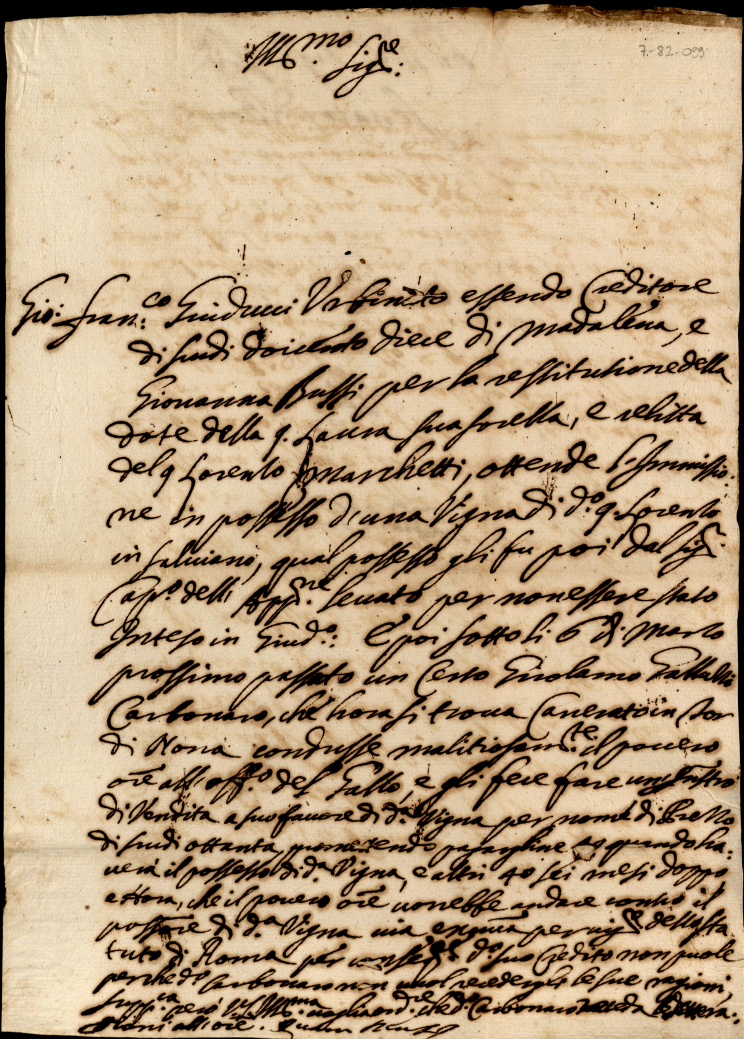 Ill.mo Sig.re:
7-82-099
Gio: Fran.co Guiducci Urbinato essendo Creditore
di scudi doicento diece di Madalena, e
Giovanna Bussi per la restitutione della
dote della q. Laura sua sorella, e relitta
del q Lorenzo Marchetti, ottenne l'Immissio:
ne in possesso d'una Vigna di d.o q. Lorenzo
in Salviano, qual possesso gli fu poi dal Sig.r
Cap.o delli App.ne levato per non essere stato
Inteso in Giud.o: E poi sotto li 6 di Marzo
prossimo passato un Certo Girolamo
Carbonaro, che hora si trova Carcerato in Tor
di Nona condusse malitiosam.te il povero
ore all'off.o del Gallo, e gli fece fare un Instro
di Vendita a suo favore di d.a Vigna per nome di Prezzo
di scudi ottanta, promettendo pagargline 40 quando ha:
verà il possesso di d.a Vigna, e altri 40 sei mesi doppo
e hora, che il povero ore vorrebbe andare contro il
possore di d.a Vigna via per dello sta
tuto di Roma per d.o suo Credito non puole
perche d.o Carbonaro non vuol recedergli le sue ragioni
Supp.ca però V.S. Ill.ma voglia ord.re che d.o Carbonaro
all'ore. Quam Deus